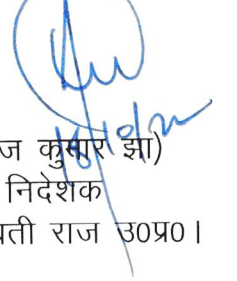 ज कुमार झा)
निदेशक
ती राज उ०प्र०।